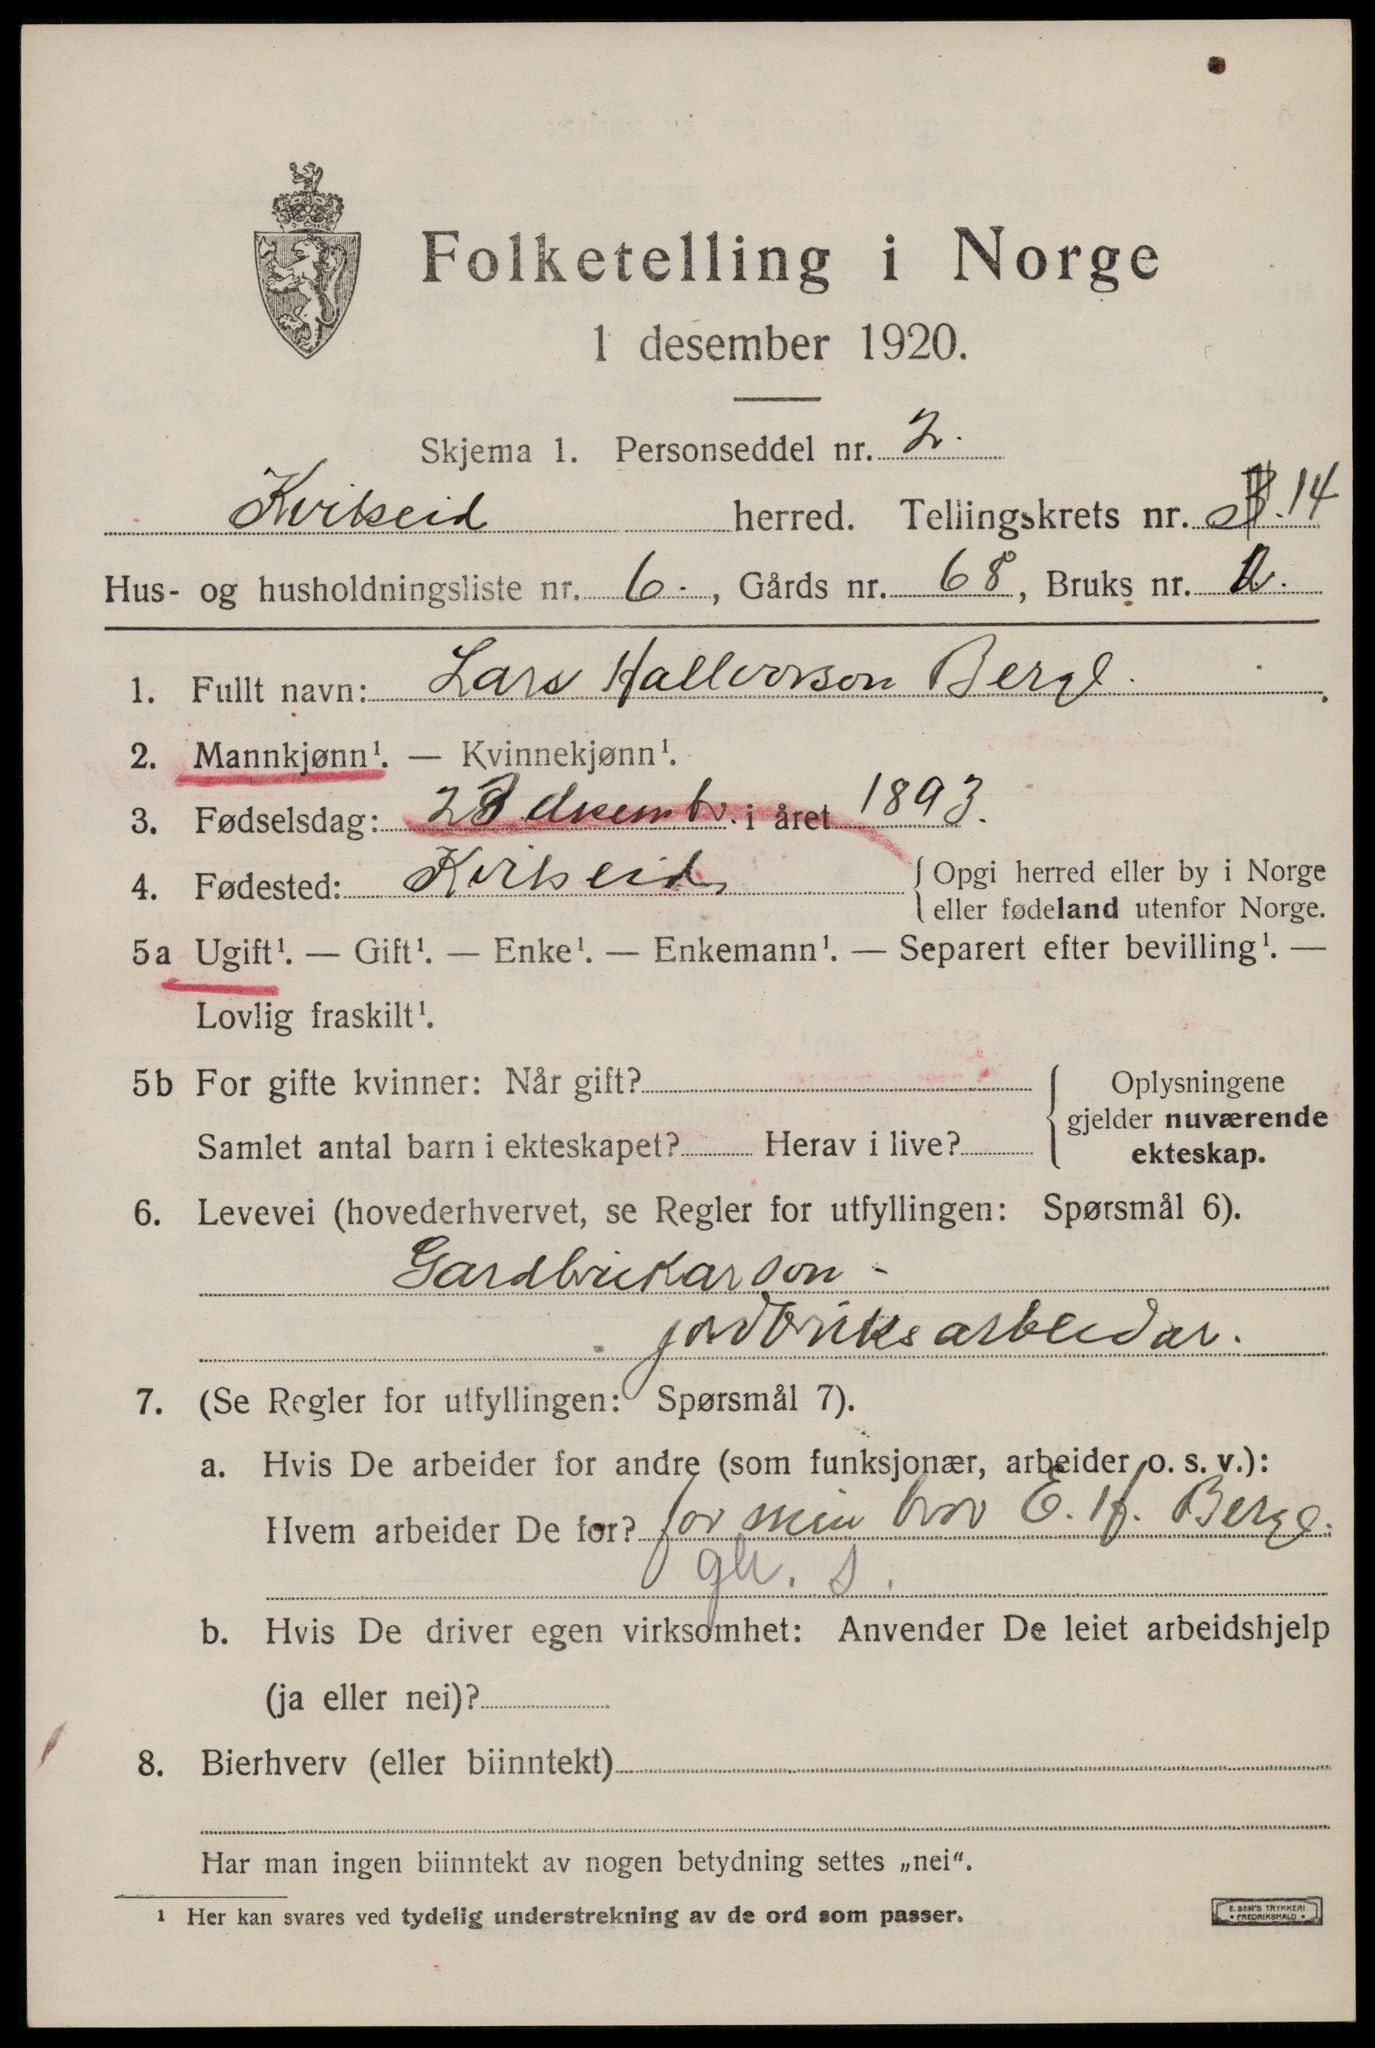 Folketelling i Norge
1 desember 1920.
Skjema 1. Personseddel nr. 2.
Kviteseid herred. Tellingskrets nr. 14
Hus- og husholdningsliste nr. 6., Gårds nr. 68, Bruks nr. 2.
1. Fullt navn: Lars Hallvorson Berge.
2. Mannkjønn¹. — Kvinnekjønn¹.
3. Fødselsdag: desembr. i året 1893.
4. Fødested: Kviteseid { Opgi herred eller by i Norge
eller fødeland utenfor Norge.
5a Ugift¹. — Gift¹. — Enke¹. — Enkemann¹. — Separert efter bevilling¹. —
Lovlig fraskilt¹.
5b For gifte kvinner: Når gift? { Oplysningene
gjelder nuværende
Samlet antal barn i ekteskapet? Herav i live? ekteskap.
6. Levevei (hovederhvervet, se Regler for utfyllingen: Spørsmål 6).
Gardbrukarson -
jordbruksarbeidar.
7. (Se Regler for utfyllingen: Spørsmål 7).
a. Hvis De arbeider for andre (som funksjonær, arbeider o. s. v.):
Hvem arbeider De for? for min bror E. H. Berge.
s.
b. Hvis De driver egen virksomhet: Anvender De leiet arbeidshjelp
(ja eller nei)?
8. Bierhverv (eller biinntekt)
Har man ingen biinntekt av nogen betydning settes „nei“.
¹ Her kan svares ved tydelig understrekning av de ord som passer.
E. SEM'S TRYKKERI
• FREDRIKSHALD •